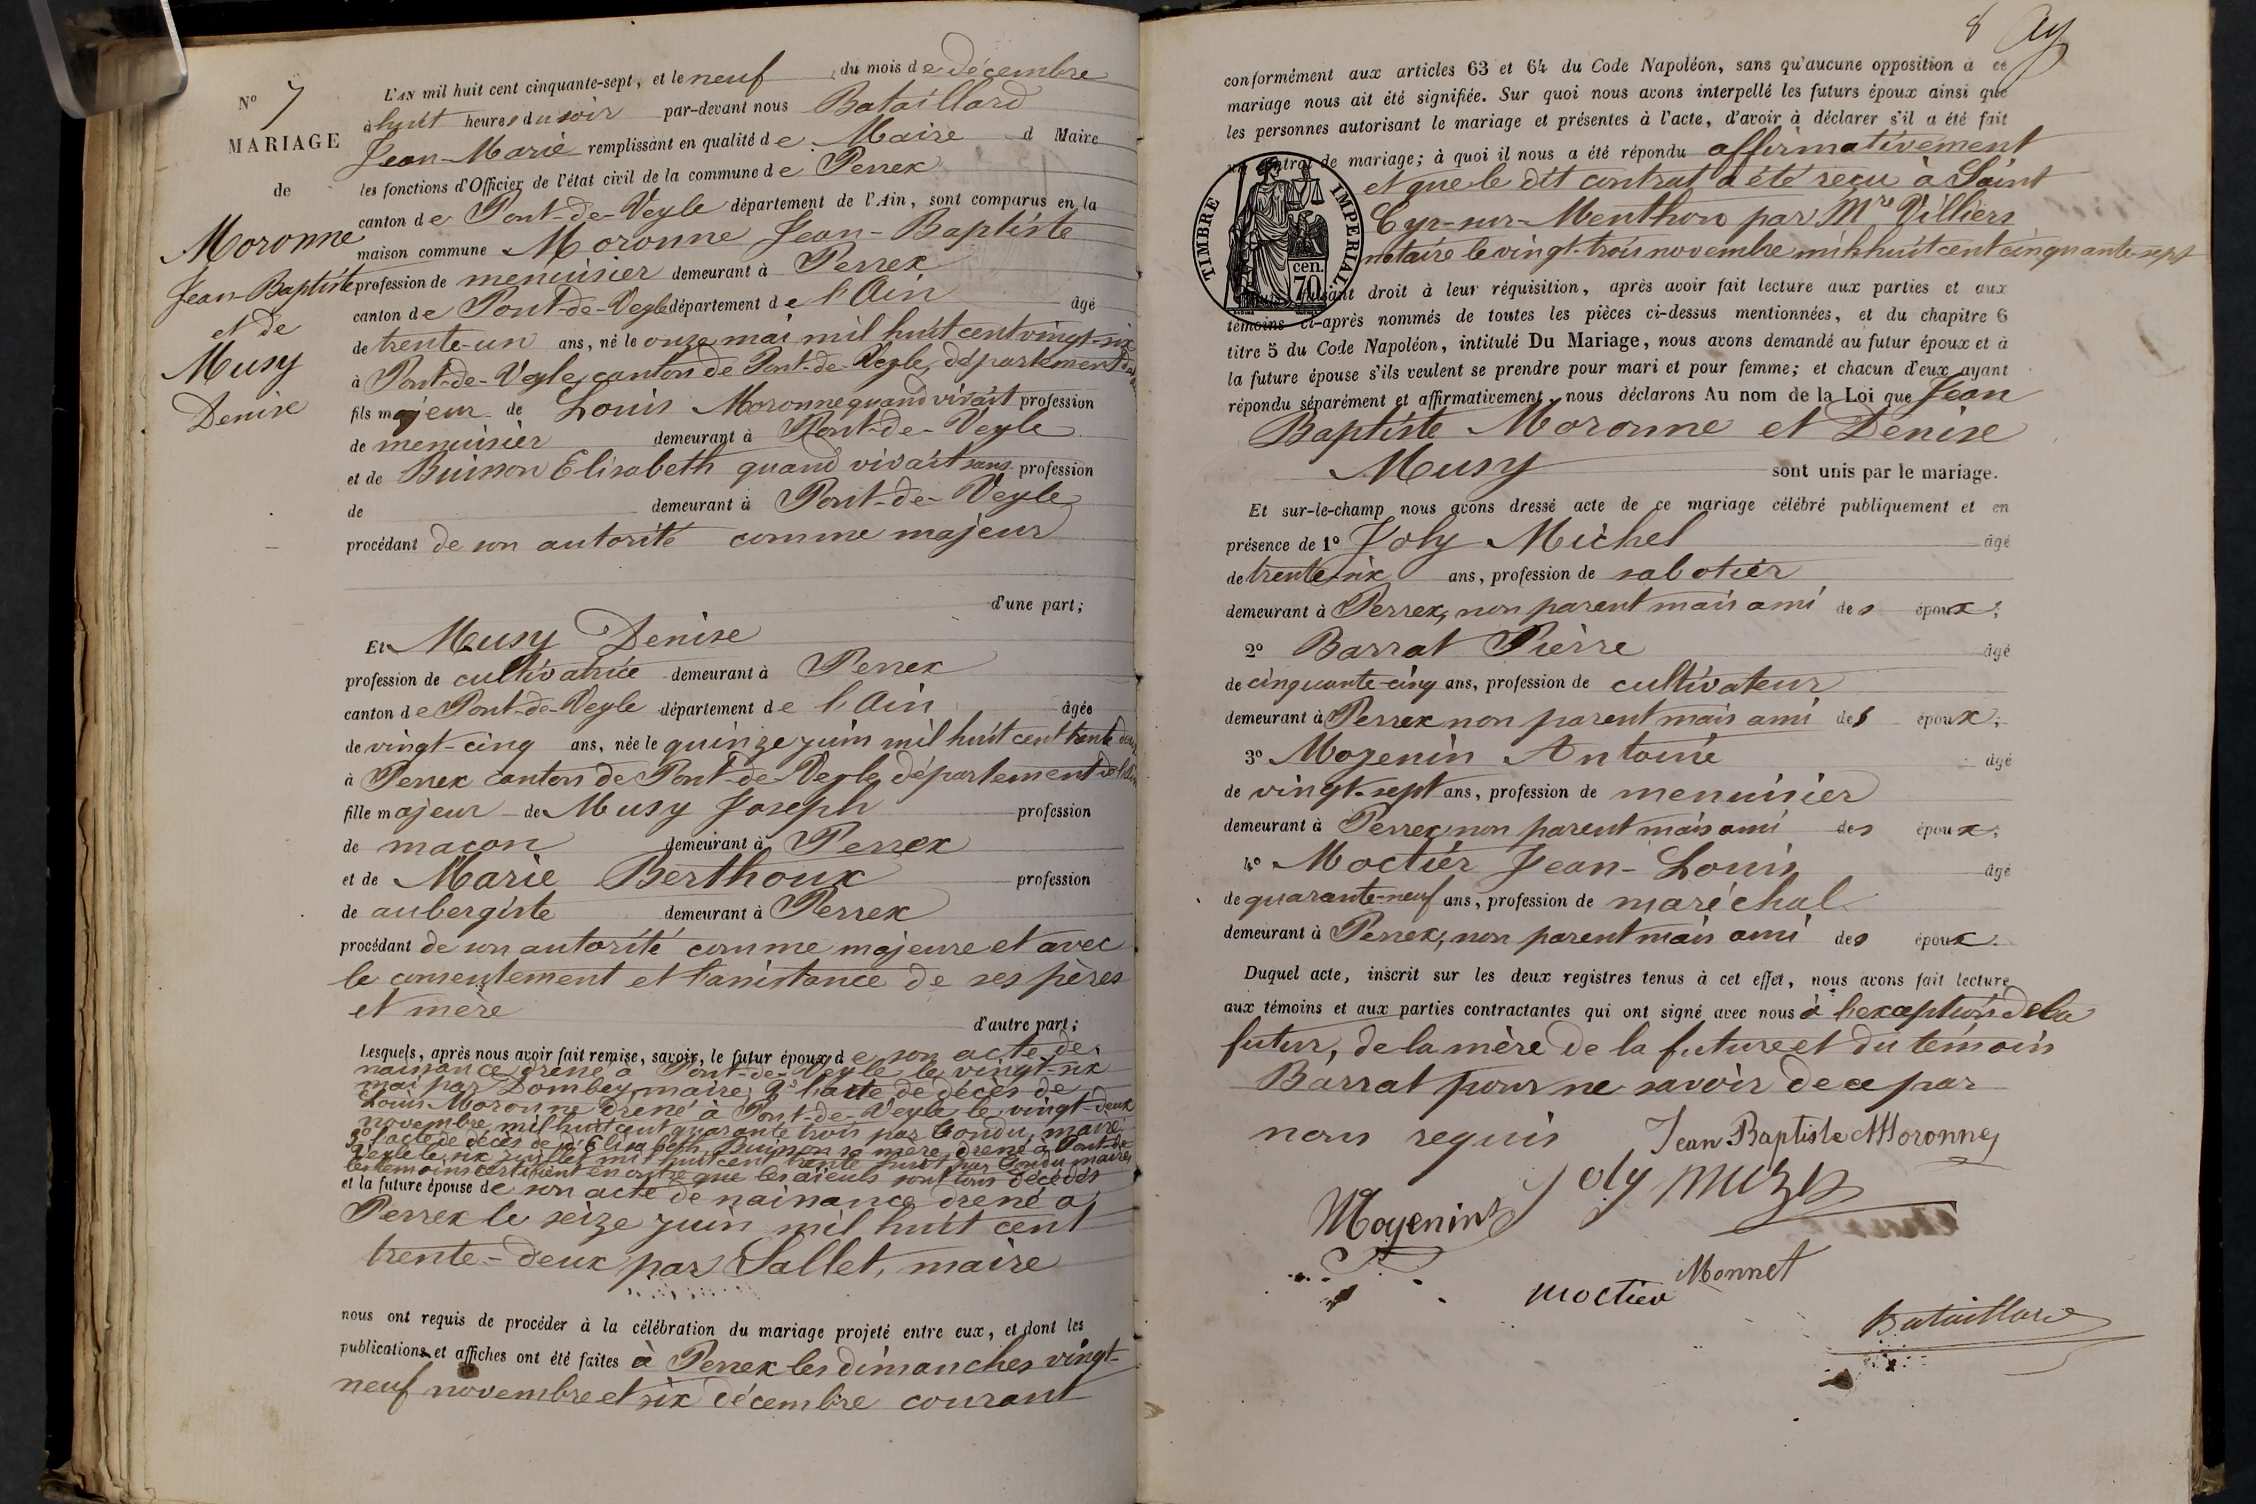 N° 7
MARIAGE
de
Moronne
Jean-Baptiste
et de
Musy
Denise
L'AN mil huit cent cinquante-sept, et le neuf du mois de décembre
à huit heures du soir par-devant nous Bataillard
Jean-Marie remplissant en qualité de Maire d Maire
les fonctions d'Officier de l'état civil de la commune de Perrex
canton de Pont-de-Veyle département de l'Ain, sont comparus en la
maison commune Moronne Jean-Baptiste
profession de menuisier demeurant à Perrex
canton de Pont-de-Veyle département de l'Ain âgé
de trente-un ans, né le onze mai mil huit cent vingt-six
à Pont-de-Veyle, canton de Pont-de-Veyle, département de l'Ain
fils majeur de Louis Moronne quand vivait profession
de menuisier demeurant à Pont-de-Veyle
et de Buisson Elisabeth quand vivait sans profession
de demeurant à Pont-de-Veyle
procédant de son autorité comme majeur
d'une part;
Et Musy Denise
profession de cultivatrice demeurant à Perrex
canton de Pont-de-Veyle département de l'Ain âgée
de vingt-cinq ans, née le quinze juin mil huit cent trente deux
à Perrex canton de Pont-de-Veyle département de l'Ain
fille majeur de Musy Joseph profession
de maçon demeurant à Perrex
et de Marie Berthoux profession
de aubergiste demeurant à Perrex
procédant de son autorité comme majeure et avec
le consentement et l'assistance de ses pères
et mère
d'autre part;
Lesquels, après nous avoir fait remise, savoir, le futur époux de son acte de
naissance dressé à Pont-de-Veyle le vingt-six
mai par Dombey, maire; 2° l'acte de décès de
Louis Moronne dressé à Pont-de-Veyle le vingt-deux
novembre mil huit cent quarante trois par Gondu, maire;
3° l'acte de décès de Elisabeth Buisson sa mère, dressé à Pont-de-
Veyle le six juillet mil huit cent trente huit par Gondu maire;
les témoins certifient en outre que les aïeuls sont tous décédés
et la future épouse de son acte de naissance dressé à
Perrex le seize juin mil huit cent
trente-deux par Sallet, maire
nous ont requis de procéder à la célébration du mariage projeté entre eux, et dont les
publications et affiches ont été faites à Perrex les dimanches vingt-
neuf novembre et six décembre courant
8
conformément aux articles 63 et 64 du Code Napoléon, sans qu'aucune opposition à ce
mariage nous ait été signifiée. Sur quoi nous avons interpellé les futurs époux ainsi que
les personnes autorisant le mariage et présentes à l'acte, d'avoir à déclarer s'il a été fait
un contrat de mariage; à quoi il nous a été répondu affirmativement
et que le dit contrat a été reçu à Saint
Cyr-sur-Menthon par Mre Villiers
notaire le vingt-trois novembre mil huit cent cinquante-sept
TIMBRE IMPERIAL
cen.
70
faisant droit à leur réquisition, après avoir fait lecture aux parties et aux
témoins ci-après nommés de toutes les pièces ci-dessus mentionnées, et du chapitre 6
titre 5 du Code Napoléon, intitulé Du Mariage, nous avons demandé au futur époux et à
la future épouse s'ils veulent se prendre pour mari et pour femme; et chacun d'eux ayant
répondu séparément et affirmativement, nous déclarons Au nom de la Loi que Jean
Baptiste Moronne et Denise
Musy sont unis par le mariage.
Et sur-le-champ nous avons dressé acte de ce mariage célébré publiquement et en
présence de 1° Joly Michel âgé
de trente-six ans, profession de sabotier
demeurant à Perrex, non parent mais ami des époux;
2° Barrat Pierre âgé
de cinquante-cinq ans, profession de cultivateur
demeurant à Perrex non parent mais ami des époux;
3° Moyenin Antoine âgé
de vingt-sept ans, profession de menuisier
demeurant à Perrex, non parent mais ami des époux;
4° Moctier Jean-Louis âgé
de quarante-neuf ans, profession de maréchal
demeurant à Perrex, non parent mais ami des époux.
Duquel acte, inscrit sur les deux registres tenus à cet effet, nous avons fait lecture
aux témoins et aux parties contractantes qui ont signé avec nous à l'exception de la
futur, de la mère de la future et du témoin
Barrat pour ne savoir de ce par
nous requis Jean Baptiste Moronne
Joly Muzy
Moyenin
Monnet
Moctier
Bataillard